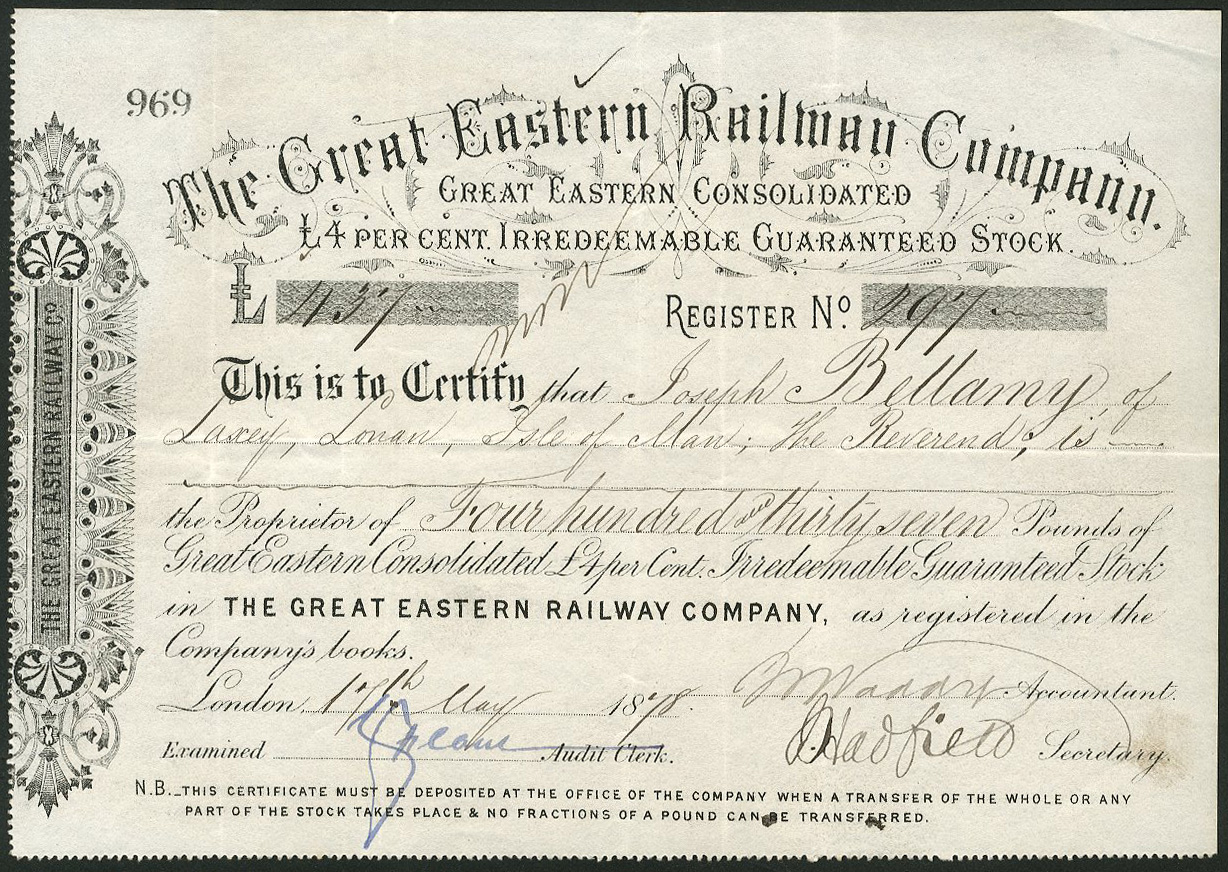 969
The Great Eastern Railway Company.
GREAT EASTERN CONSOLIDATED
£4 PER CENT. IRREDEEMABLE GUARANTEED STOCK.
£ 437
REGISTER No. 297
This is to Certify that Joseph Bellamy, of
Laxey, Lonan, Isle of Man, the Reverend, is
the Proprietor of Four hundred and thirty seven Pounds of
Great Eastern Consolidated £4 per Cent. Irredeemable Guaranteed Stock
in THE GREAT EASTERN RAILWAY COMPANY, as registered in the
Company's books.
London, 17th May 1878.
Accountant.
Examined Audit Clerk.
Hadfield Secretary.
N.B._THIS CERTIFICATE MUST BE DEPOSITED AT THE OFFICE OF THE COMPANY WHEN A TRANSFER OF THE WHOLE OR ANY
PART OF THE STOCK TAKES PLACE & NO FRACTIONS OF A POUND CAN BE TRANSFERRED.
THE GREAT EASTERN RAILWAY CO